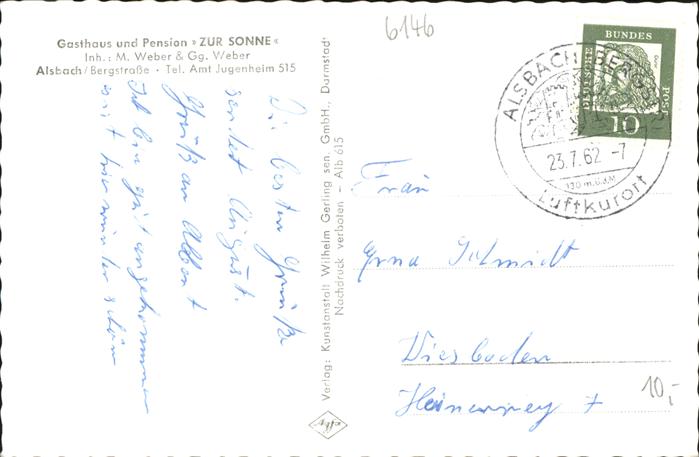 6146
Gasthaus und Pension »ZUR SONNE«
Inh.: M. Weber & Gg. Weber
Alsbach/Bergstraße • Tel. Amt Jugenheim 515
Die besten Grüße
sendet August.
Gruß an Albert
Ich bin gut angekommen
es ist hier wunderschön
Verlag: Kunstanstalt Wilhelm Gerling sen. GmbH., Darmstadt
Nachdruck verboten – Alb 615
DEUTSCHE BUNDESPOST
10
ALSBACH (BERGSTR
23.7.62 -7
130 m.ü.d.M
Luftkurort
Frau
Erna Schmidt
Wiesbaden
7
10,-